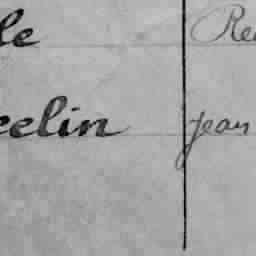 le Re
celin Jean